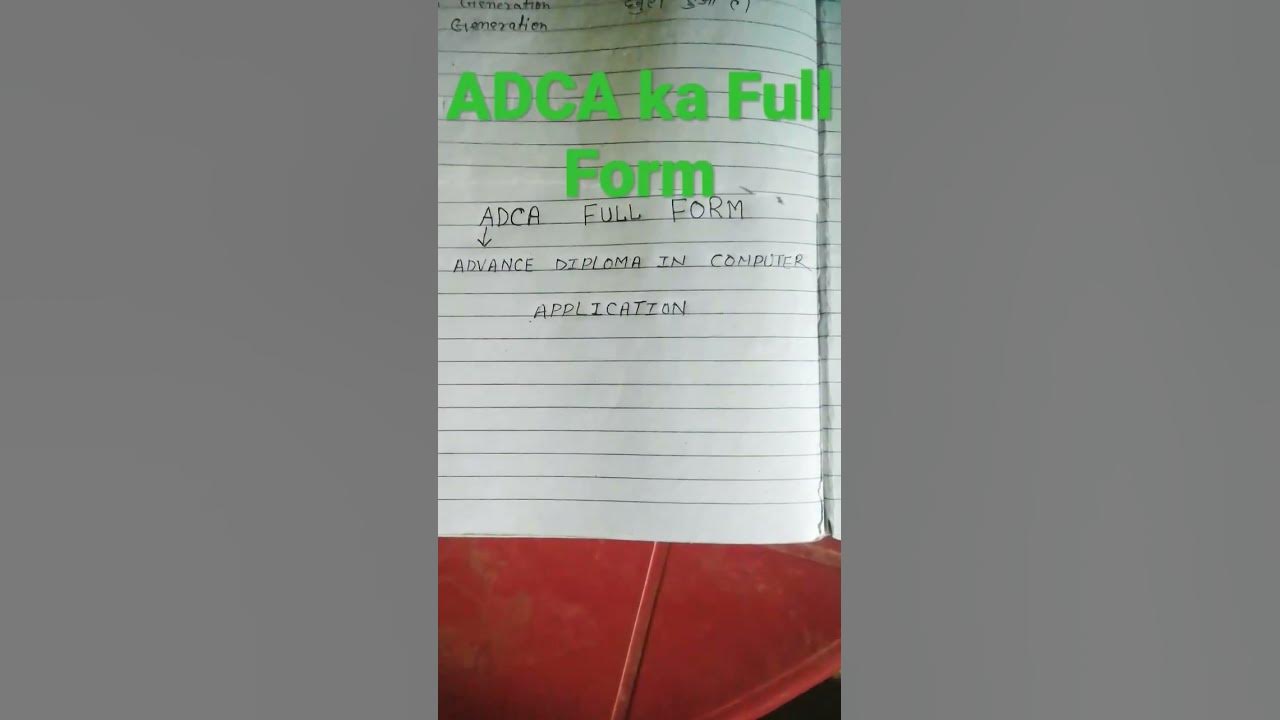 Generation
Generation
ADCA ka Full
Form
ADCA FULL FORM
ADVANCE DIPLOMA IN COMPUTER
APPLICATION